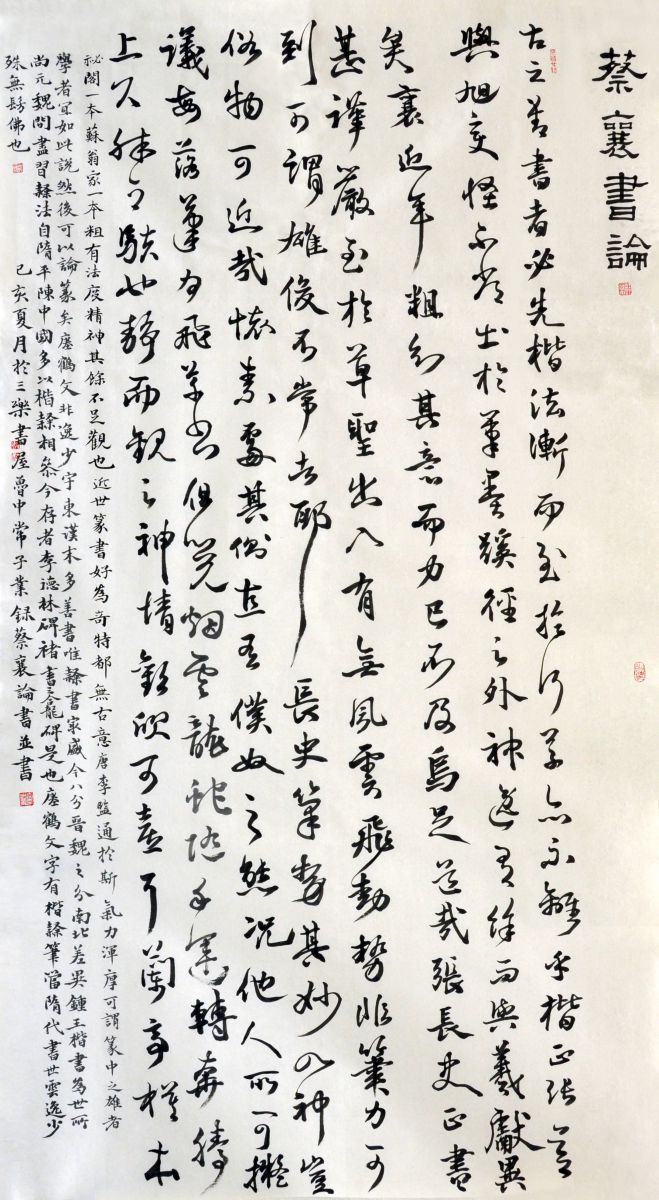 蔡襄書論
古之善書者必先楷法漸而至於行草亦不離乎楷正張芝
與旭變怪不常出於筆墨蹊徑之外神逸有餘而與羲獻異
矣襄近年粗知其意而力已不及烏足道哉張長史正書
甚謹嚴至於草聖出入有無風雲飛動勢非筆力可
到可謂雄俊不常者耶長史筆勢其妙入神豈
俗物可近哉懷素處其側直有僕奴之態況他人所可擬
議每落筆為飛草書但覺烟雲龍蛇隨手運轉奔騰
上下殊可駭也靜而觀之神情歡欣可喜耳蘭亭模本
祕閣一本蘇翁家一本粗有法度精神其餘不足觀也近世篆書好為奇特都無古意唐李監通於斯氣力渾厚可謂篆中之雄者
學者宜如此說然後可以論篆矣瘞鶴文非逸少字東漢末多善書唯隸書最盛今八分晉魏之分南北差異鍾王楷書為世所
尚元魏間盡習隸法自隋平陳中國多以楷隸相參今存者李德林碑褚書三龕碑是也瘞鶴文字有楷隸筆當隋代書世雲逸少
殊無髣彿也
己亥夏月於三樂書屋魯中常子業録蔡襄論書並書